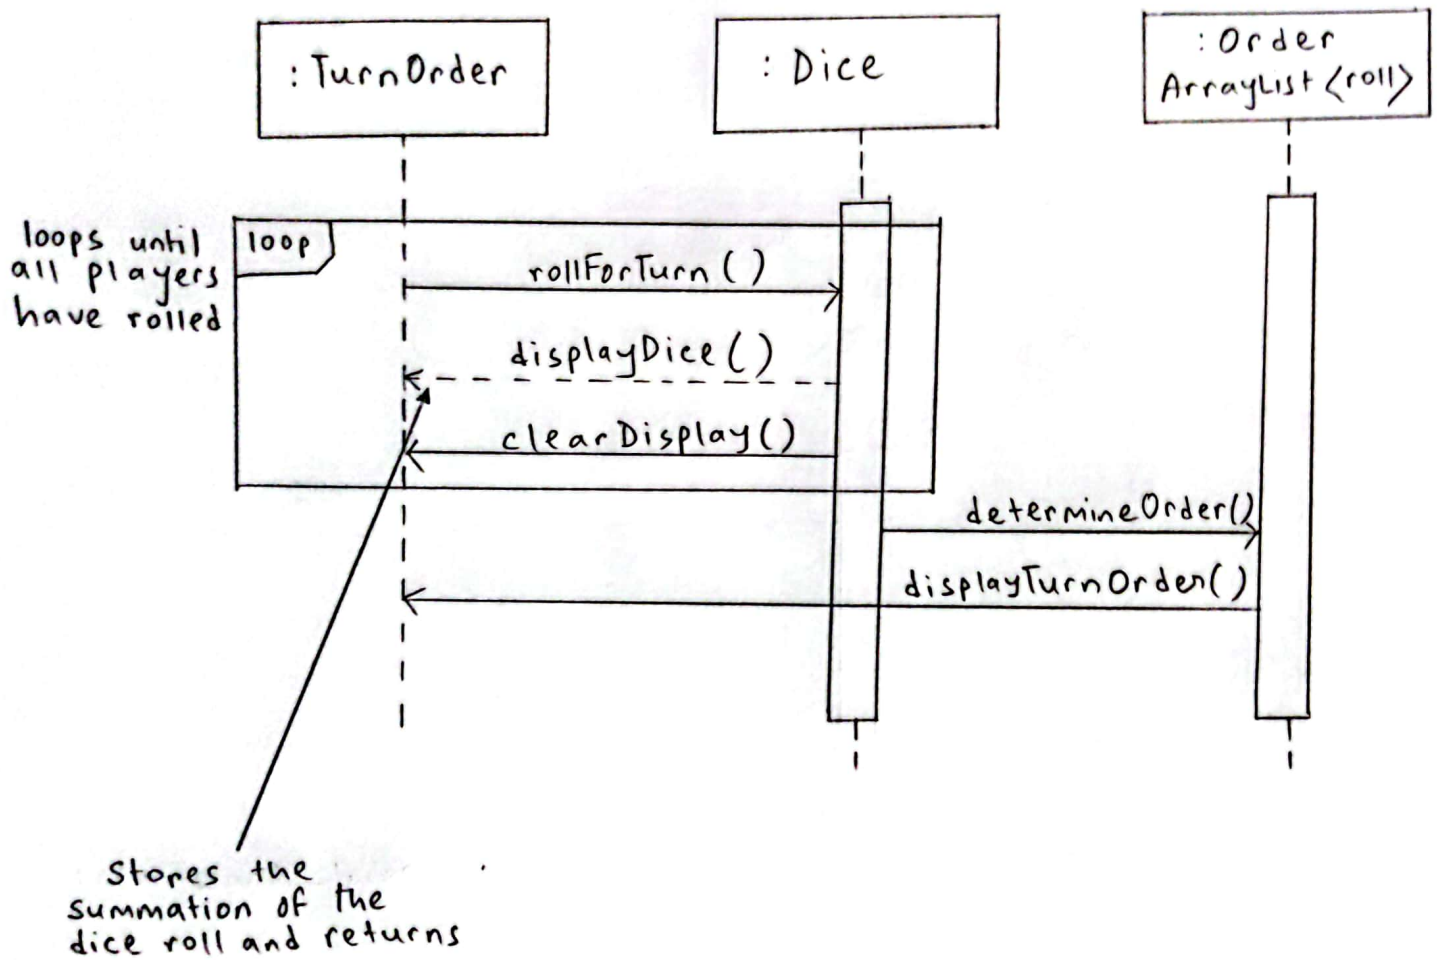 : TurnOrder
: Dice
: Order
ArrayList <roll>
loops until
all players
have rolled
loop
rollForTurn ()
displayDice ()
clearDisplay()
determineOrder()
displayTurnOrder()
Stores the
summation of the
dice roll and returns